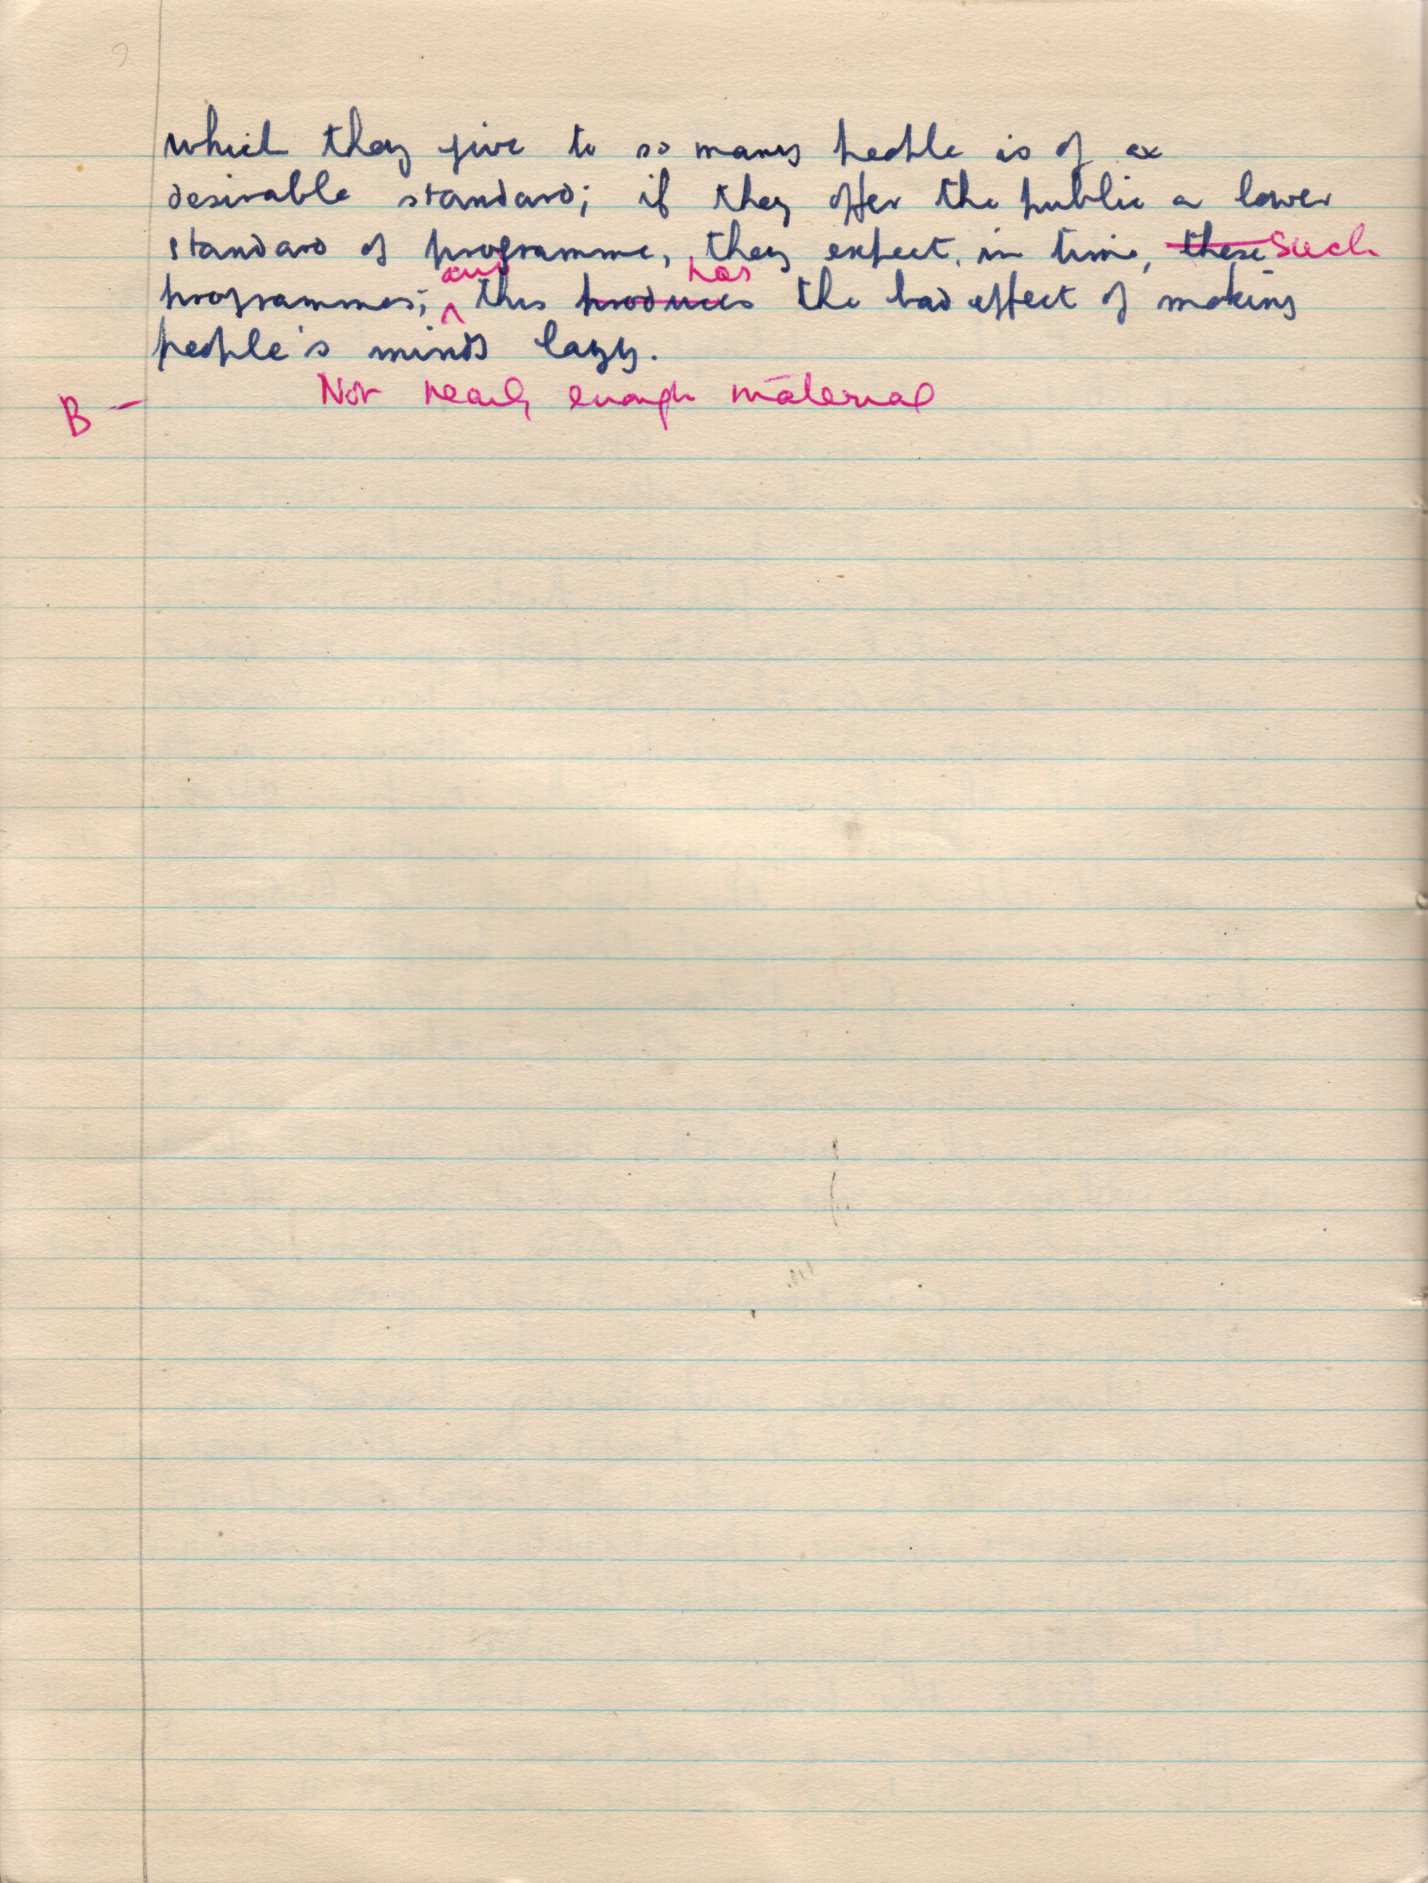 which they give to so many people is of a
desirable standard; if they offer the public a lower
standard of programme, they expect, in time, these such
programmes; and this produces has the bad effect of making
people's minds lazy.
B - Not nearly enough material